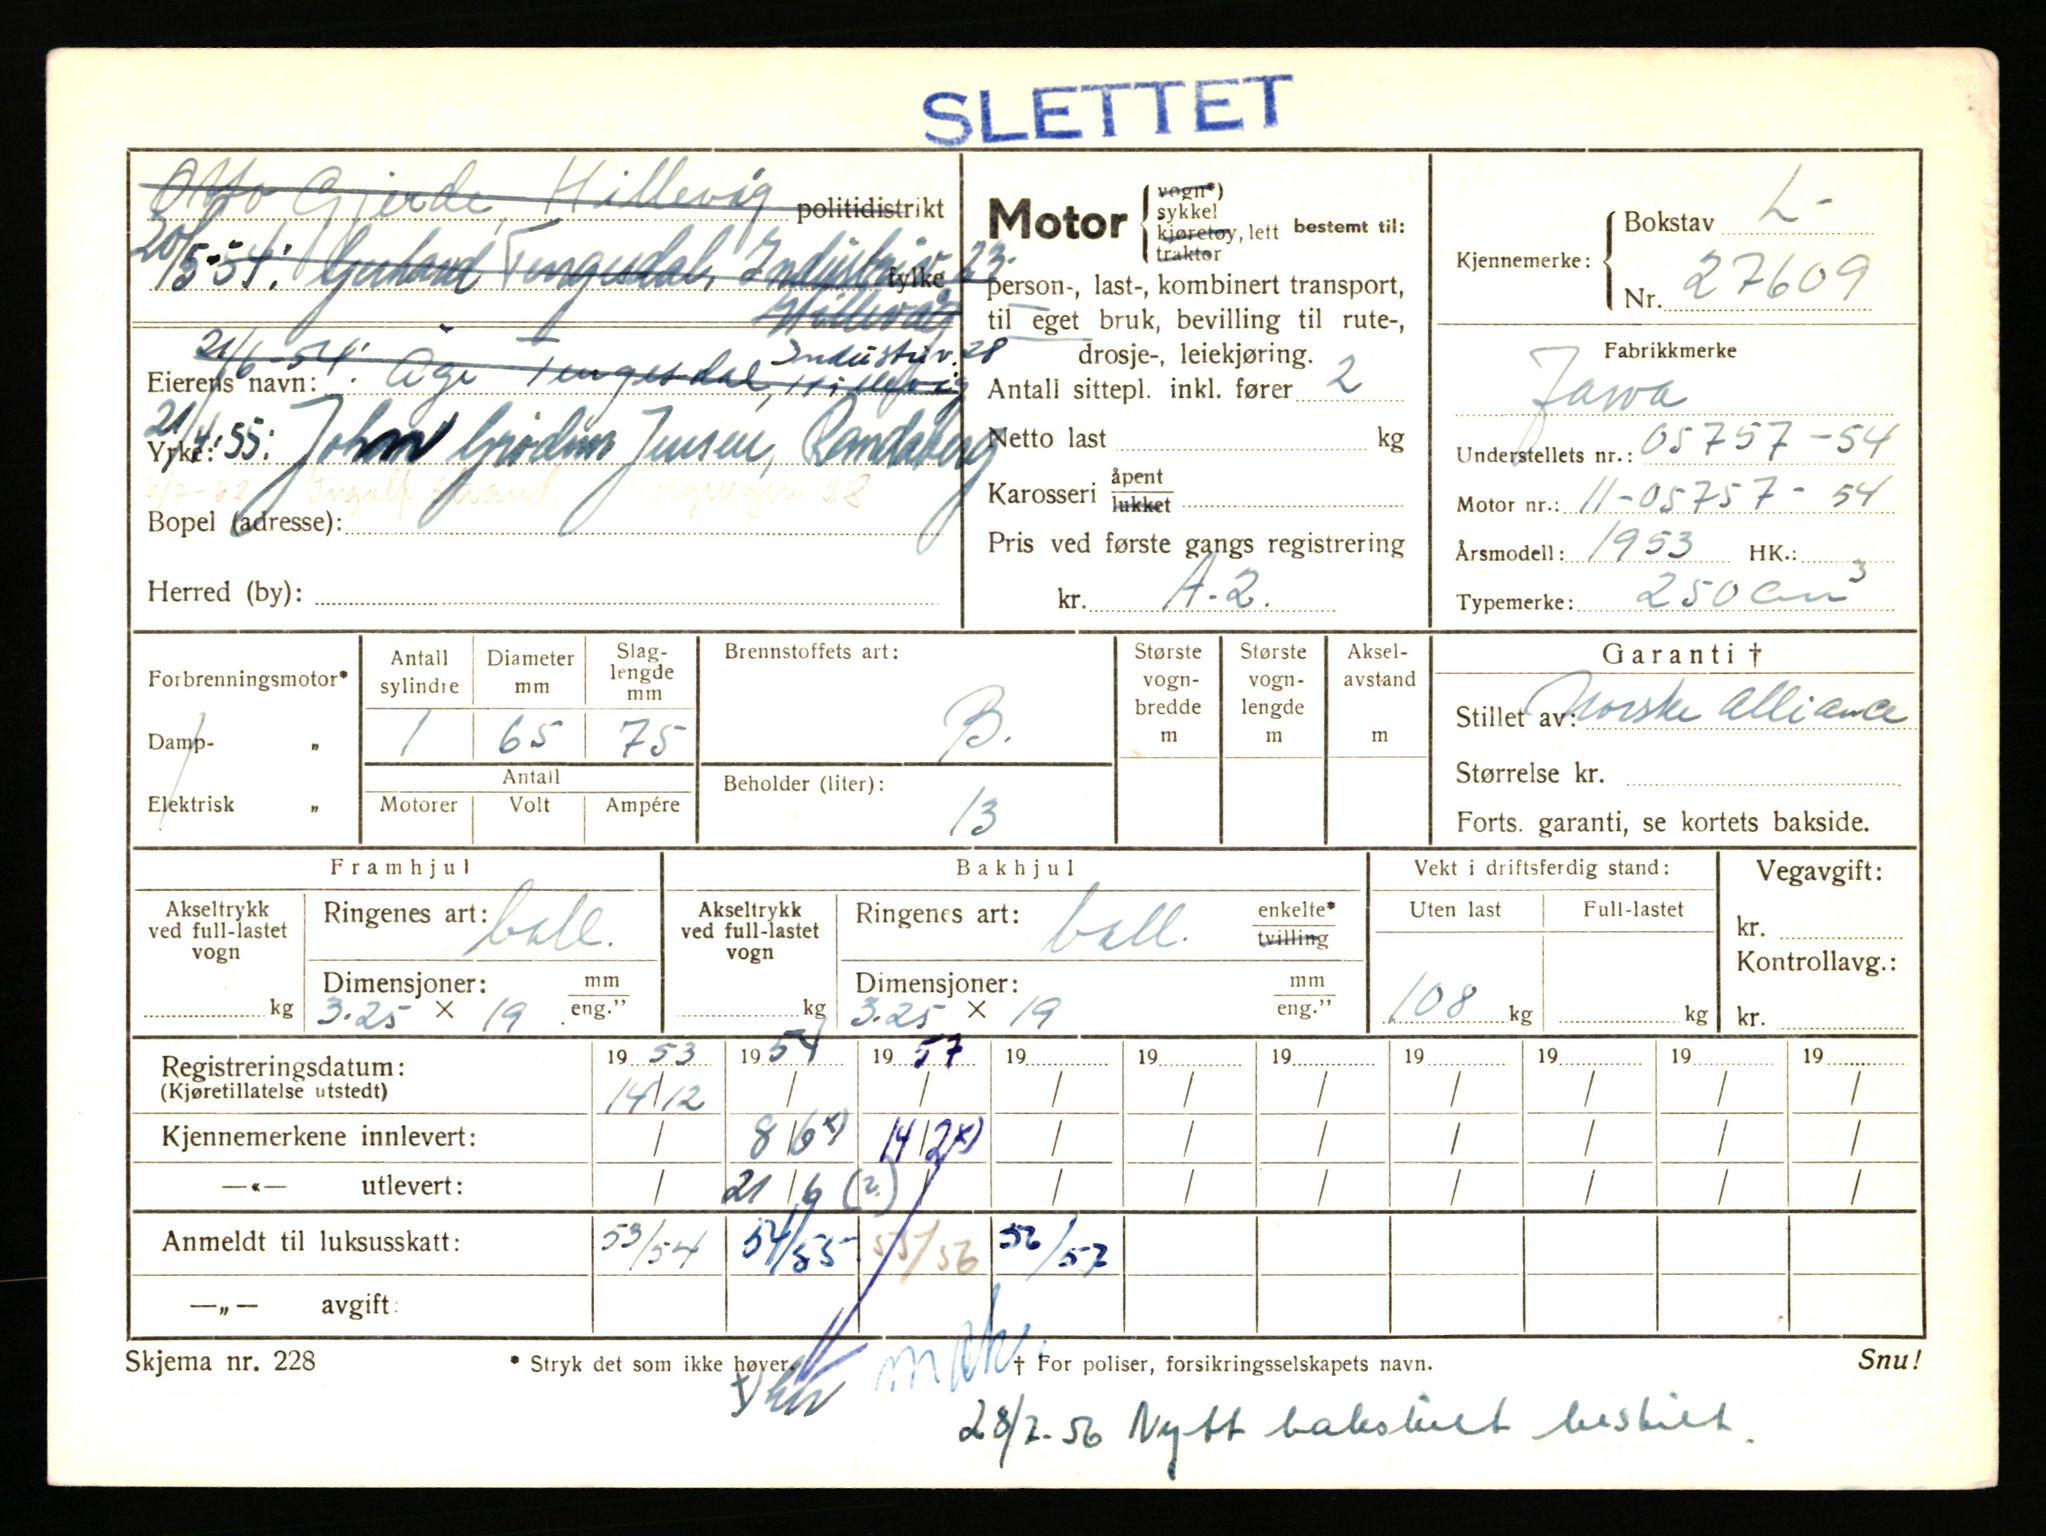 SLETTET
Otto Gjerde, Hillevåg politidistrikt
20/5-54: Gerhard Tengesdal, Industriv. 23
fylke
Hillevåg
21/6-54: Åge Tengesdal, Industriv. 28
Hillevåg
Eierens navn:
21/4-55: John Grødem Jensen, Randaberg
Yrke:
6/7-62 Ingolf Strand, 28
Bopel (adresse):
Herred (by):
Motor
vogn*)
sykkel
kjøretøy, lett
traktor
bestemt til:
person-, last-, kombinert transport,
til eget bruk, bevilling til rute-,
drosje-, leiekjøring.
Antall sittepl. inkl. fører 2
Netto last kg
Karosseri åpent
lukket
Pris ved første gangs registrering
kr. A-2.
Kjennemerke:
Bokstav L-
Nr. 27609
Fabrikkmerke
Jawa
Understellets nr.: 05757-54
Motor nr.: 11-05757-54
Årsmodell: 1953 HK.:
Typemerke: 250 cm³
Forbrenningsmotor*
Damp- „
Elektrisk „
Antall sylindre
Diameter mm
Slag-lengde mm
1 65 75
Antall
Motorer Volt Ampére
Brennstoffets art:
B.
Beholder (liter):
13
Største vogn-bredde m
Største vogn-lengde m
Aksel-avstand m
Garanti †
Stillet av: Norske Alliance
Størrelse kr.
Forts. garanti, se kortets bakside.
Framhjul
Akseltrykk ved full-lastet vogn
kg
Ringenes art: ball.
Dimensjoner: mm
3.25 × 19 eng.”
Bakhjul
Akseltrykk ved full-lastet vogn
kg
Ringenes art: ball. enkelte*
tvilling
Dimensjoner: mm
3.25 × 19 eng.”
Vekt i driftsferdig stand:
Uten last Full-lastet
108 kg kg
Vegavgift:
kr.
Kontrollavg.:
kr.
Registreringsdatum: 1953 1954 1957 19 19 19 19 19 19 19
(Kjøretillatelse utstedt) 14/12 / / / / / / / / /
Kjennemerkene innlevert: / 8/6 x) 14/2 x) / / / / / / /
—«— utlevert: / 21/6 (2) / / / / / / / /
Anmeldt til luksusskatt: 53/54 54/55 55/56 56/57
—„— avgift:
Skjema nr. 228 * Stryk det som ikke høver. † For poliser, forsikringsselskapets navn. Snu!
28/2-56 Nytt bakskilt bestilt.